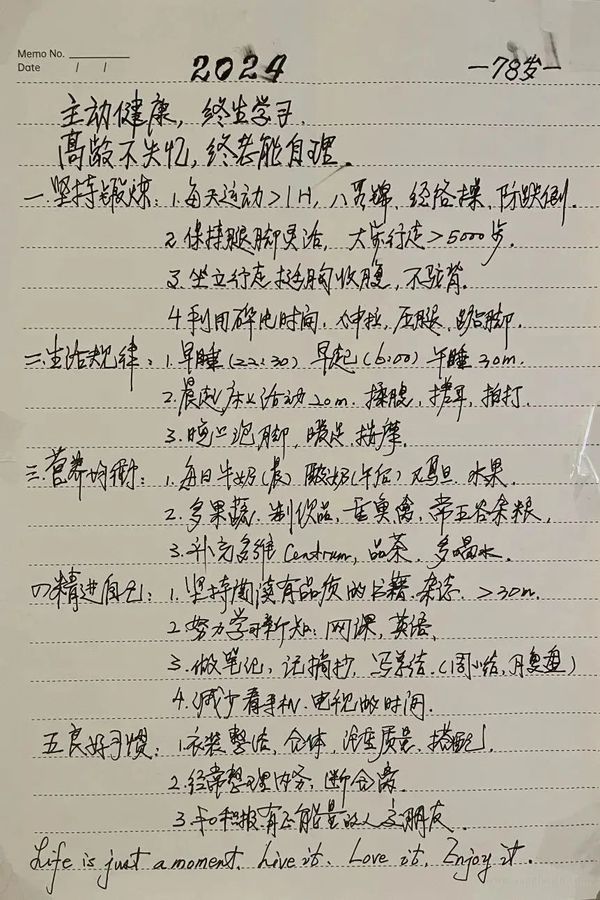 Memo No.
Date / /
2024 —78岁—
主动健康，终生学习.
高龄不失忆，终老能自理。
一.坚持锻炼：1.每天运动>1H，八段锦，经络操、防跌倒.
2.保持腿脚灵活，大步行走>5000步.
3.坐立行走挺胸收腹，不驼背.
4.利用碎片时间，伸拉，压腿，踮脚.
二.生活规律：1.早睡(22:30) 早起(6:00) 午睡30m.
2.晨起床上活动20m.揉腹，搓耳，拍打.
3.晚上泡脚，暖足，按摩.
三.营养均衡：1.每日牛奶(晨) 酸奶(午后) 鸡旦.水果.
2.多果蔬.豆制品，鱼禽，常五谷杂粮.
3.补充多维Centrum，品茶，多喝水.
四精进自己：1.坚持阅读有品质的书籍.杂志.>30m.
2.努力学习新知：网课，英语.
3.做笔记，记摘抄，写总结.(周小结,月复盘)
4.减少看手机.电视的时间.
五良好习惯：1.衣装整洁，合体，注重质量.搭配.
2.经常整理内务，断舍离.
3.和积极有正能量的人交朋友.
Life is just a moment. Live it. Love it. Enjoy it.